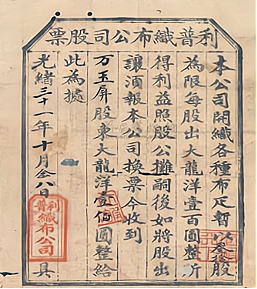 利普織布公司股票
本公司開織各種布疋暫以叁佰股
為限每股出大龍洋壹百圓整所
得利益照股公攤嗣後如將股出
讓須報本公司換票今收到
万玉屏股東大龍洋壹佰圓整給
此為據
光緒三十一年十月廿八日
具
利普織布公司